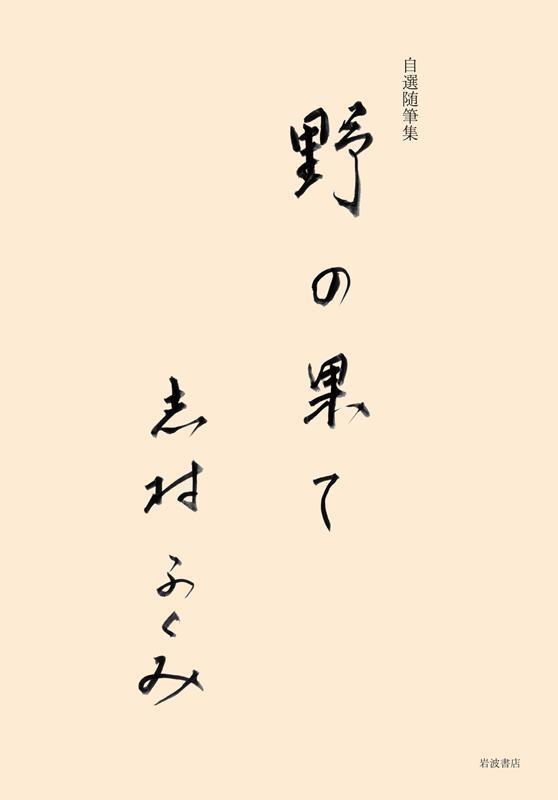 自選随筆集
野の果て
志村ふくみ
岩波書店